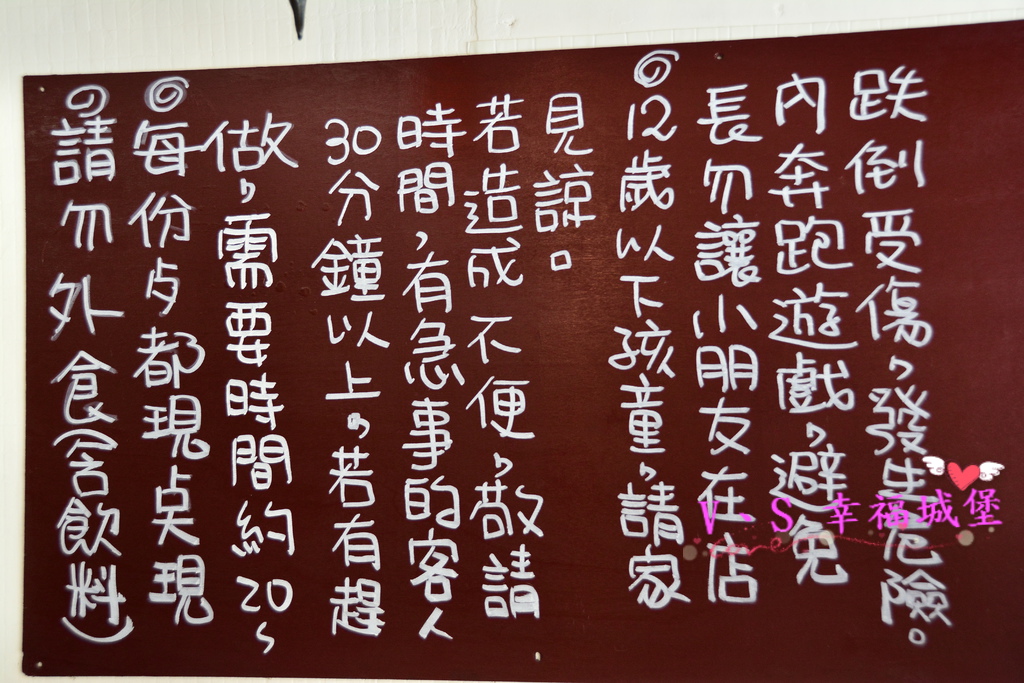 ◎請勿外食(含飲料)
◎每份歺都現点現
做，需要時間約20~
30分鐘以上，若有趕
時間，有急事的客人
若造成不便，敬請
見諒。
◎12歲以下孩童，請家
長勿讓小朋友在店
內奔跑遊戲，避免
跌倒受傷，發生危險。
V.S 幸福城堡